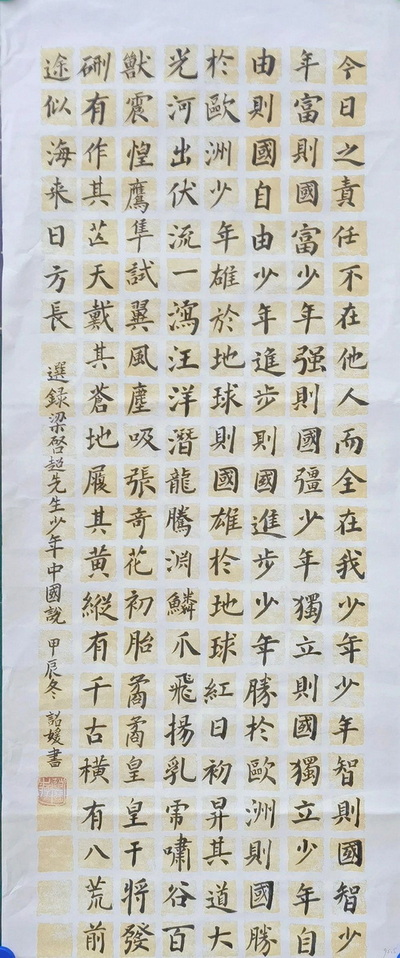 今日之責任不在他人而全在我少年少年智則國智少
年富則國富少年强則國彊少年獨立則國獨立少年自
由則國自由少年進步則國進步少年勝於歐洲則國勝
於歐洲少年雄於地球則國雄於地球紅日初昇其道大
光河出伏流一瀉汪洋潛龍騰渕鱗爪飛揚乳虎嘯谷百
獸震惶鷹隼試翼風塵吸張奇花初胎矞矞皇皇干將發
硎有作其芒天戴其蒼地履其黄縱有千古橫有八荒前
途似海来日方長 選録梁啓超先生少年中國說 甲辰冬 詔媛書